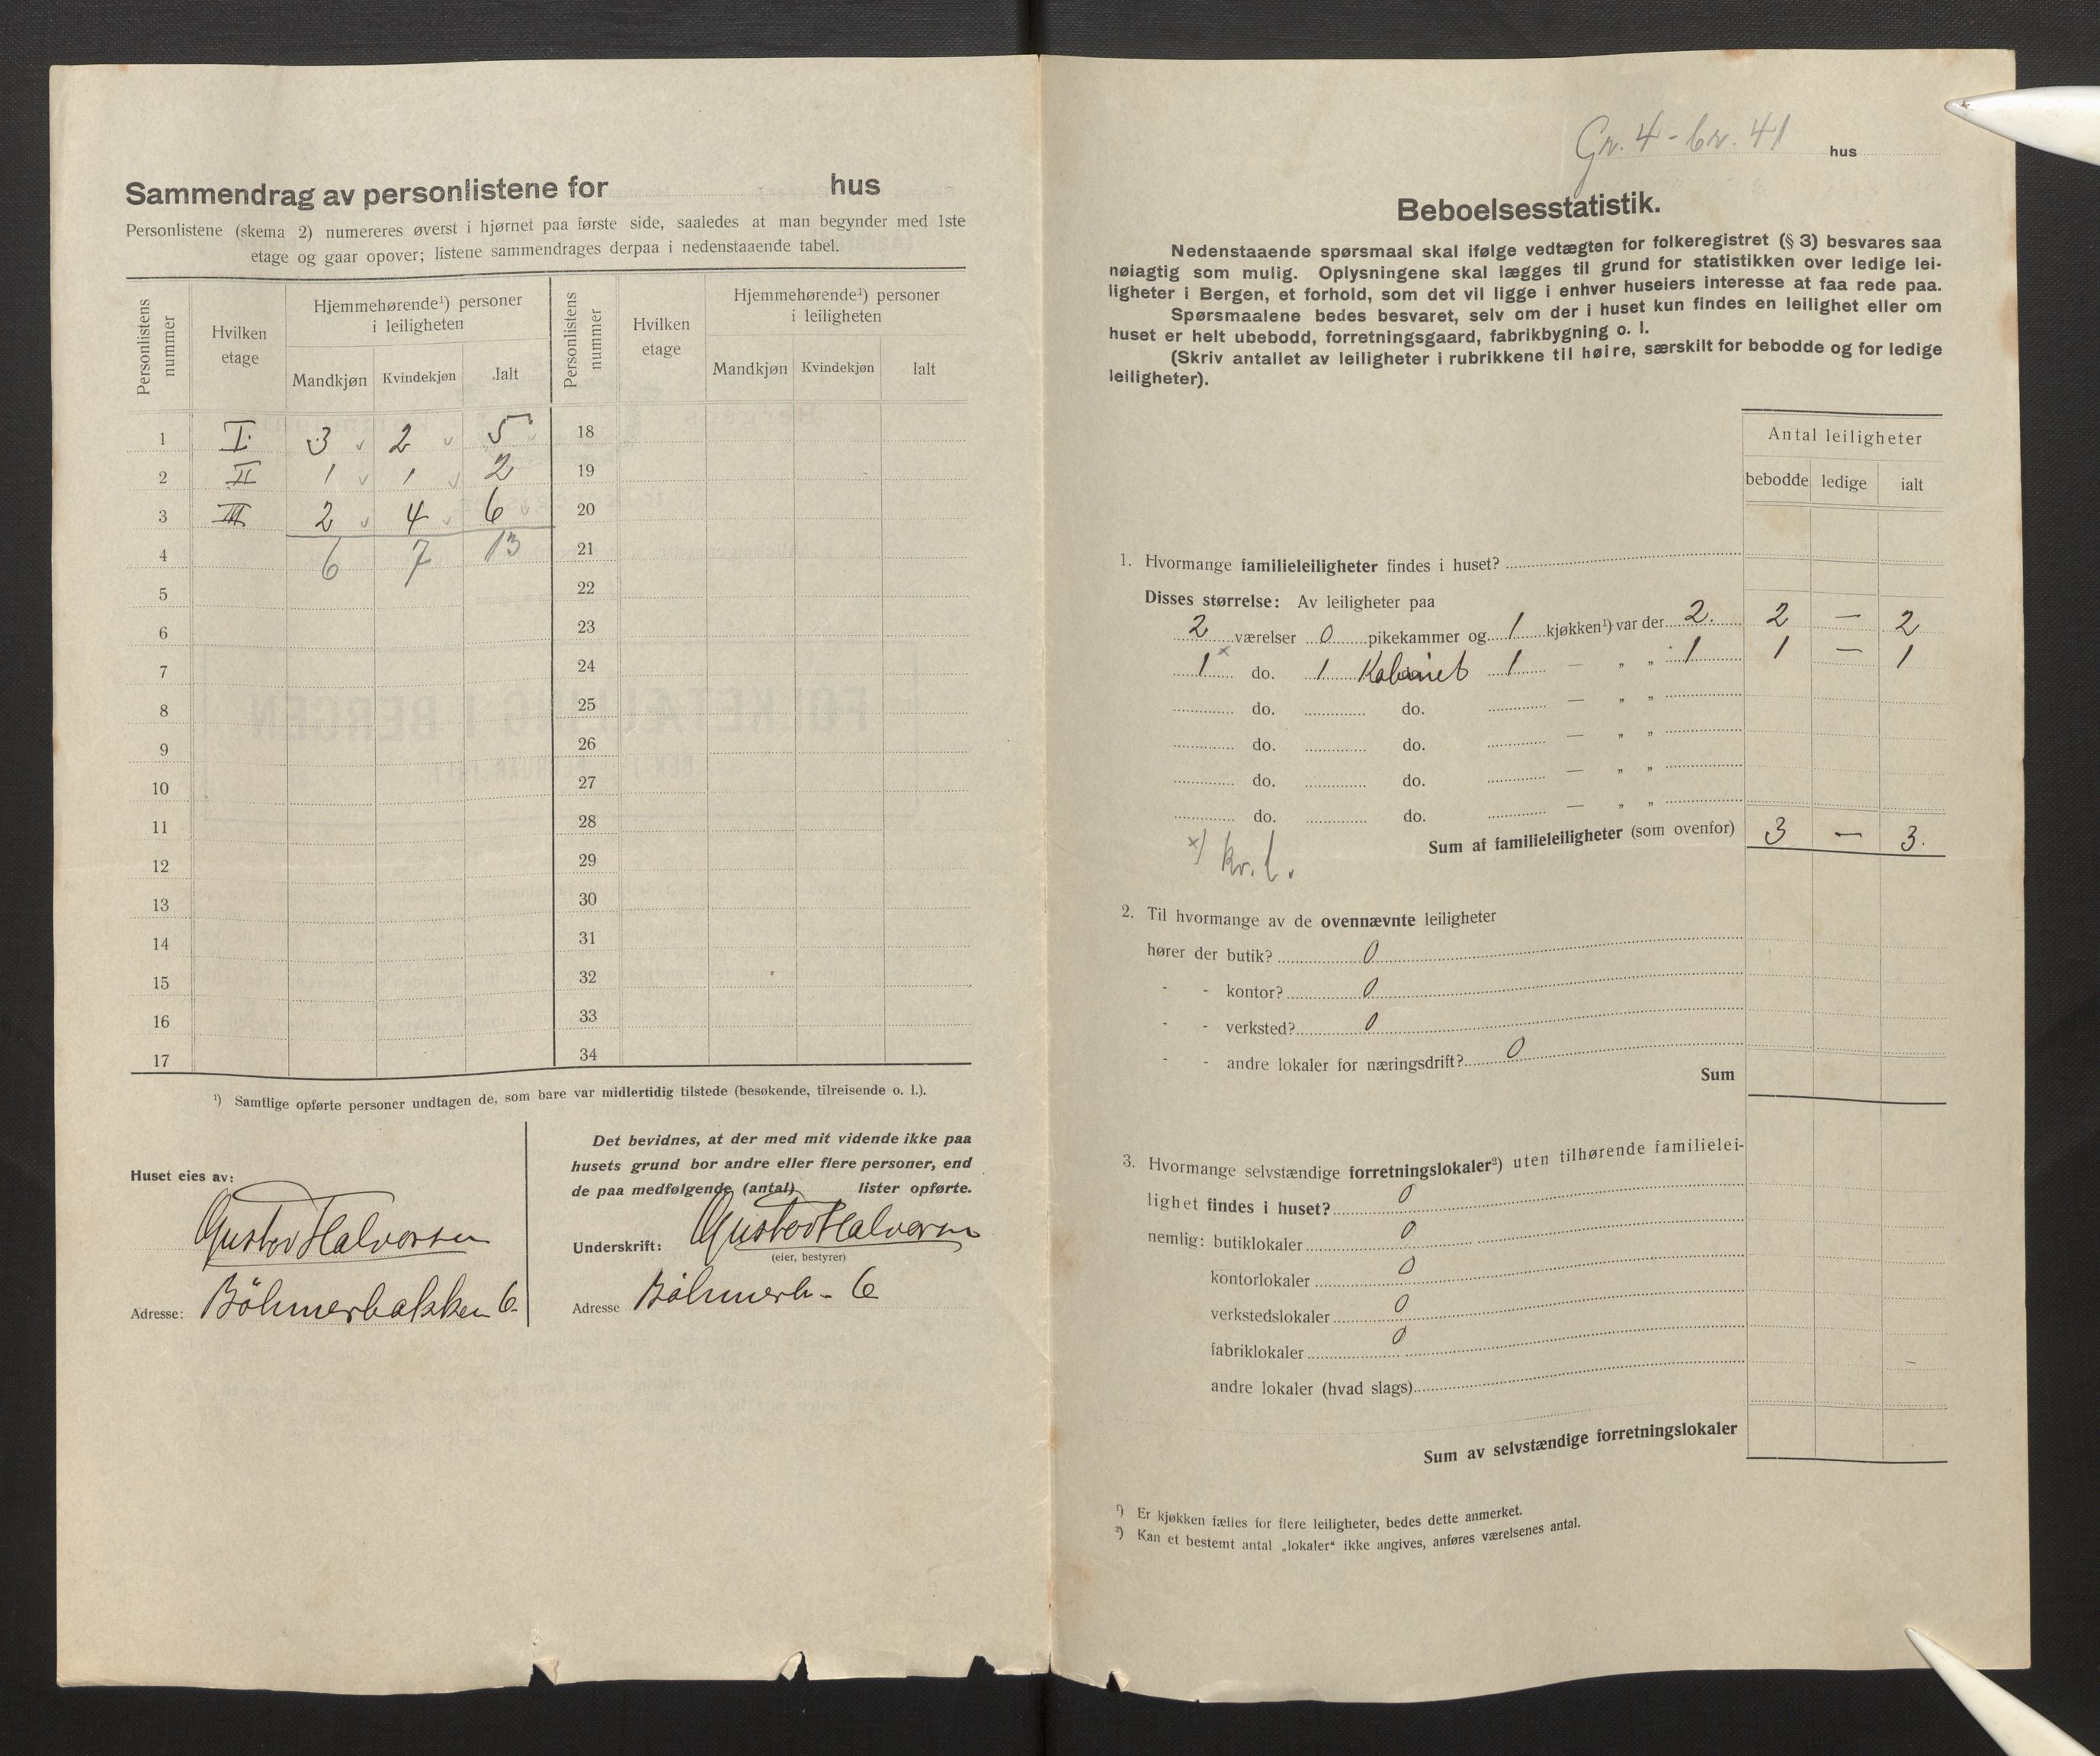 Sammendrag av personlistene for hus
Personlistene (skema 2) numereres øverst i hjørnet paa første side, saaledes at man begynder med 1ste
etage og gaar opover; listene sammendrages derpaa i nedenstaaende tabel.
Personlistens nummer
Hvilken etage
Hjemmehørende¹) personer i leiligheten
Mandkjøn Kvindekjøn Ialt
Personlistens nummer
Hvilken etage
Hjemmehørende¹) personer i leiligheten
Mandkjøn Kvindekjøn Ialt
1 I. 3 2 5 18
2 II 1 1 2 19
3 III 2 4 6 20
4 6 7 13 21
5 22
6 23
7 24
8 25
9 26
10 27
11 28
12 29
13 30
14 31
15 32
16 33
17 34
¹) Samtlige opførte personer undtagen de, som bare var midlertidig tilstede (besøkende, tilreisende o. l.).
Huset eies av:
Gustav Halvorsen
Adresse: Böhmerbakken 6.
Det bevidnes, at der med mit vidende ikke paa
husets grund bor andre eller flere personer, end
de paa medfølgende (antal) lister opførte.
Underskrift: Gustav Halvorsen
(eier, bestyrer)
Adresse Böhmerb. 6
Gn. 4 - br. 41 hus
Beboelsesstatistik.
Nedenstaaende spørsmaal skal ifølge vedtægten for folkeregistret (§ 3) besvares saa
nøiagtig som mulig. Oplysningene skal lægges til grund for statistikken over ledige lei-
ligheter i Bergen, et forhold, som det vil ligge i enhver huseiers interesse at faa rede paa.
Spørsmaalene bedes besvaret, selv om der i huset kun findes en leilighet eller om
huset er helt ubebodd, forretningsgaard, fabrikbygning o. l.
(Skriv antallet av leiligheter i rubrikkene til høire, særskilt for bebodde og for ledige
leiligheter).
Antal leiligheter
bebodde ledige ialt
1. Hvormange familieleiligheter findes i huset?
Disses størrelse: Av leiligheter paa
2 værelser 0 pikekammer og 1 kjøkken¹) var der 2. 2 — 2
1 x do. 1 Kabinet 1 — „ „ 1 1 — 1
do. do. — „ „
do. do. — „ „
do. do. — „ „
do. do. — „ „
Sum af familieleiligheter (som ovenfor) 3 — 3.
x) kv. l.
2. Til hvormange av de ovennævnte leiligheter
hører der butik? 0
- - kontor? 0
- - verksted? 0
- - andre lokaler for næringsdrift? 0
Sum
3. Hvormange selvstændige forretningslokaler²) uten tilhørende familielei-
lighet findes i huset? 0
nemlig: butiklokaler 0
kontorlokaler 0
verkstedslokaler 0
fabriklokaler 0
andre lokaler (hvad slags)
Sum av selvstændige forretningslokaler
¹) Er kjøkken fælles for flere leiligheter, bedes dette anmerket.
²) Kan et bestemt antal „lokaler“ ikke angives, anføres værelsenes antal.